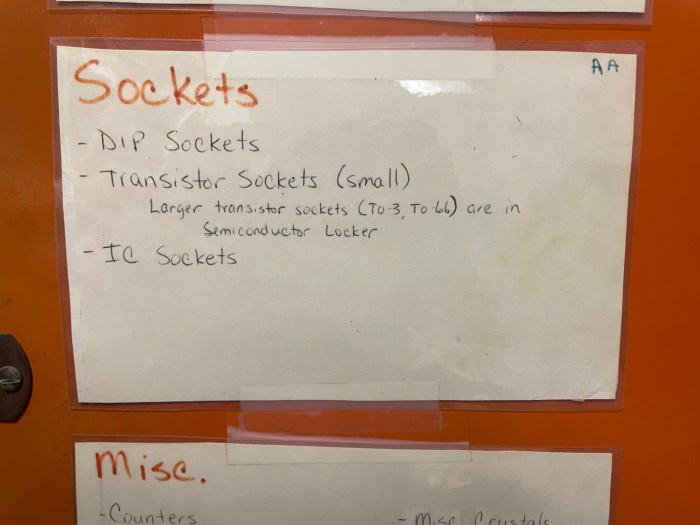 Sockets
AA
- DIP Sockets
- Transistor Sockets (small)
Larger transistor sockets (TO-3, TO-66) are in
Semiconductor Locker
- IC Sockets
Misc.
- Counters
- Misc. Crystals